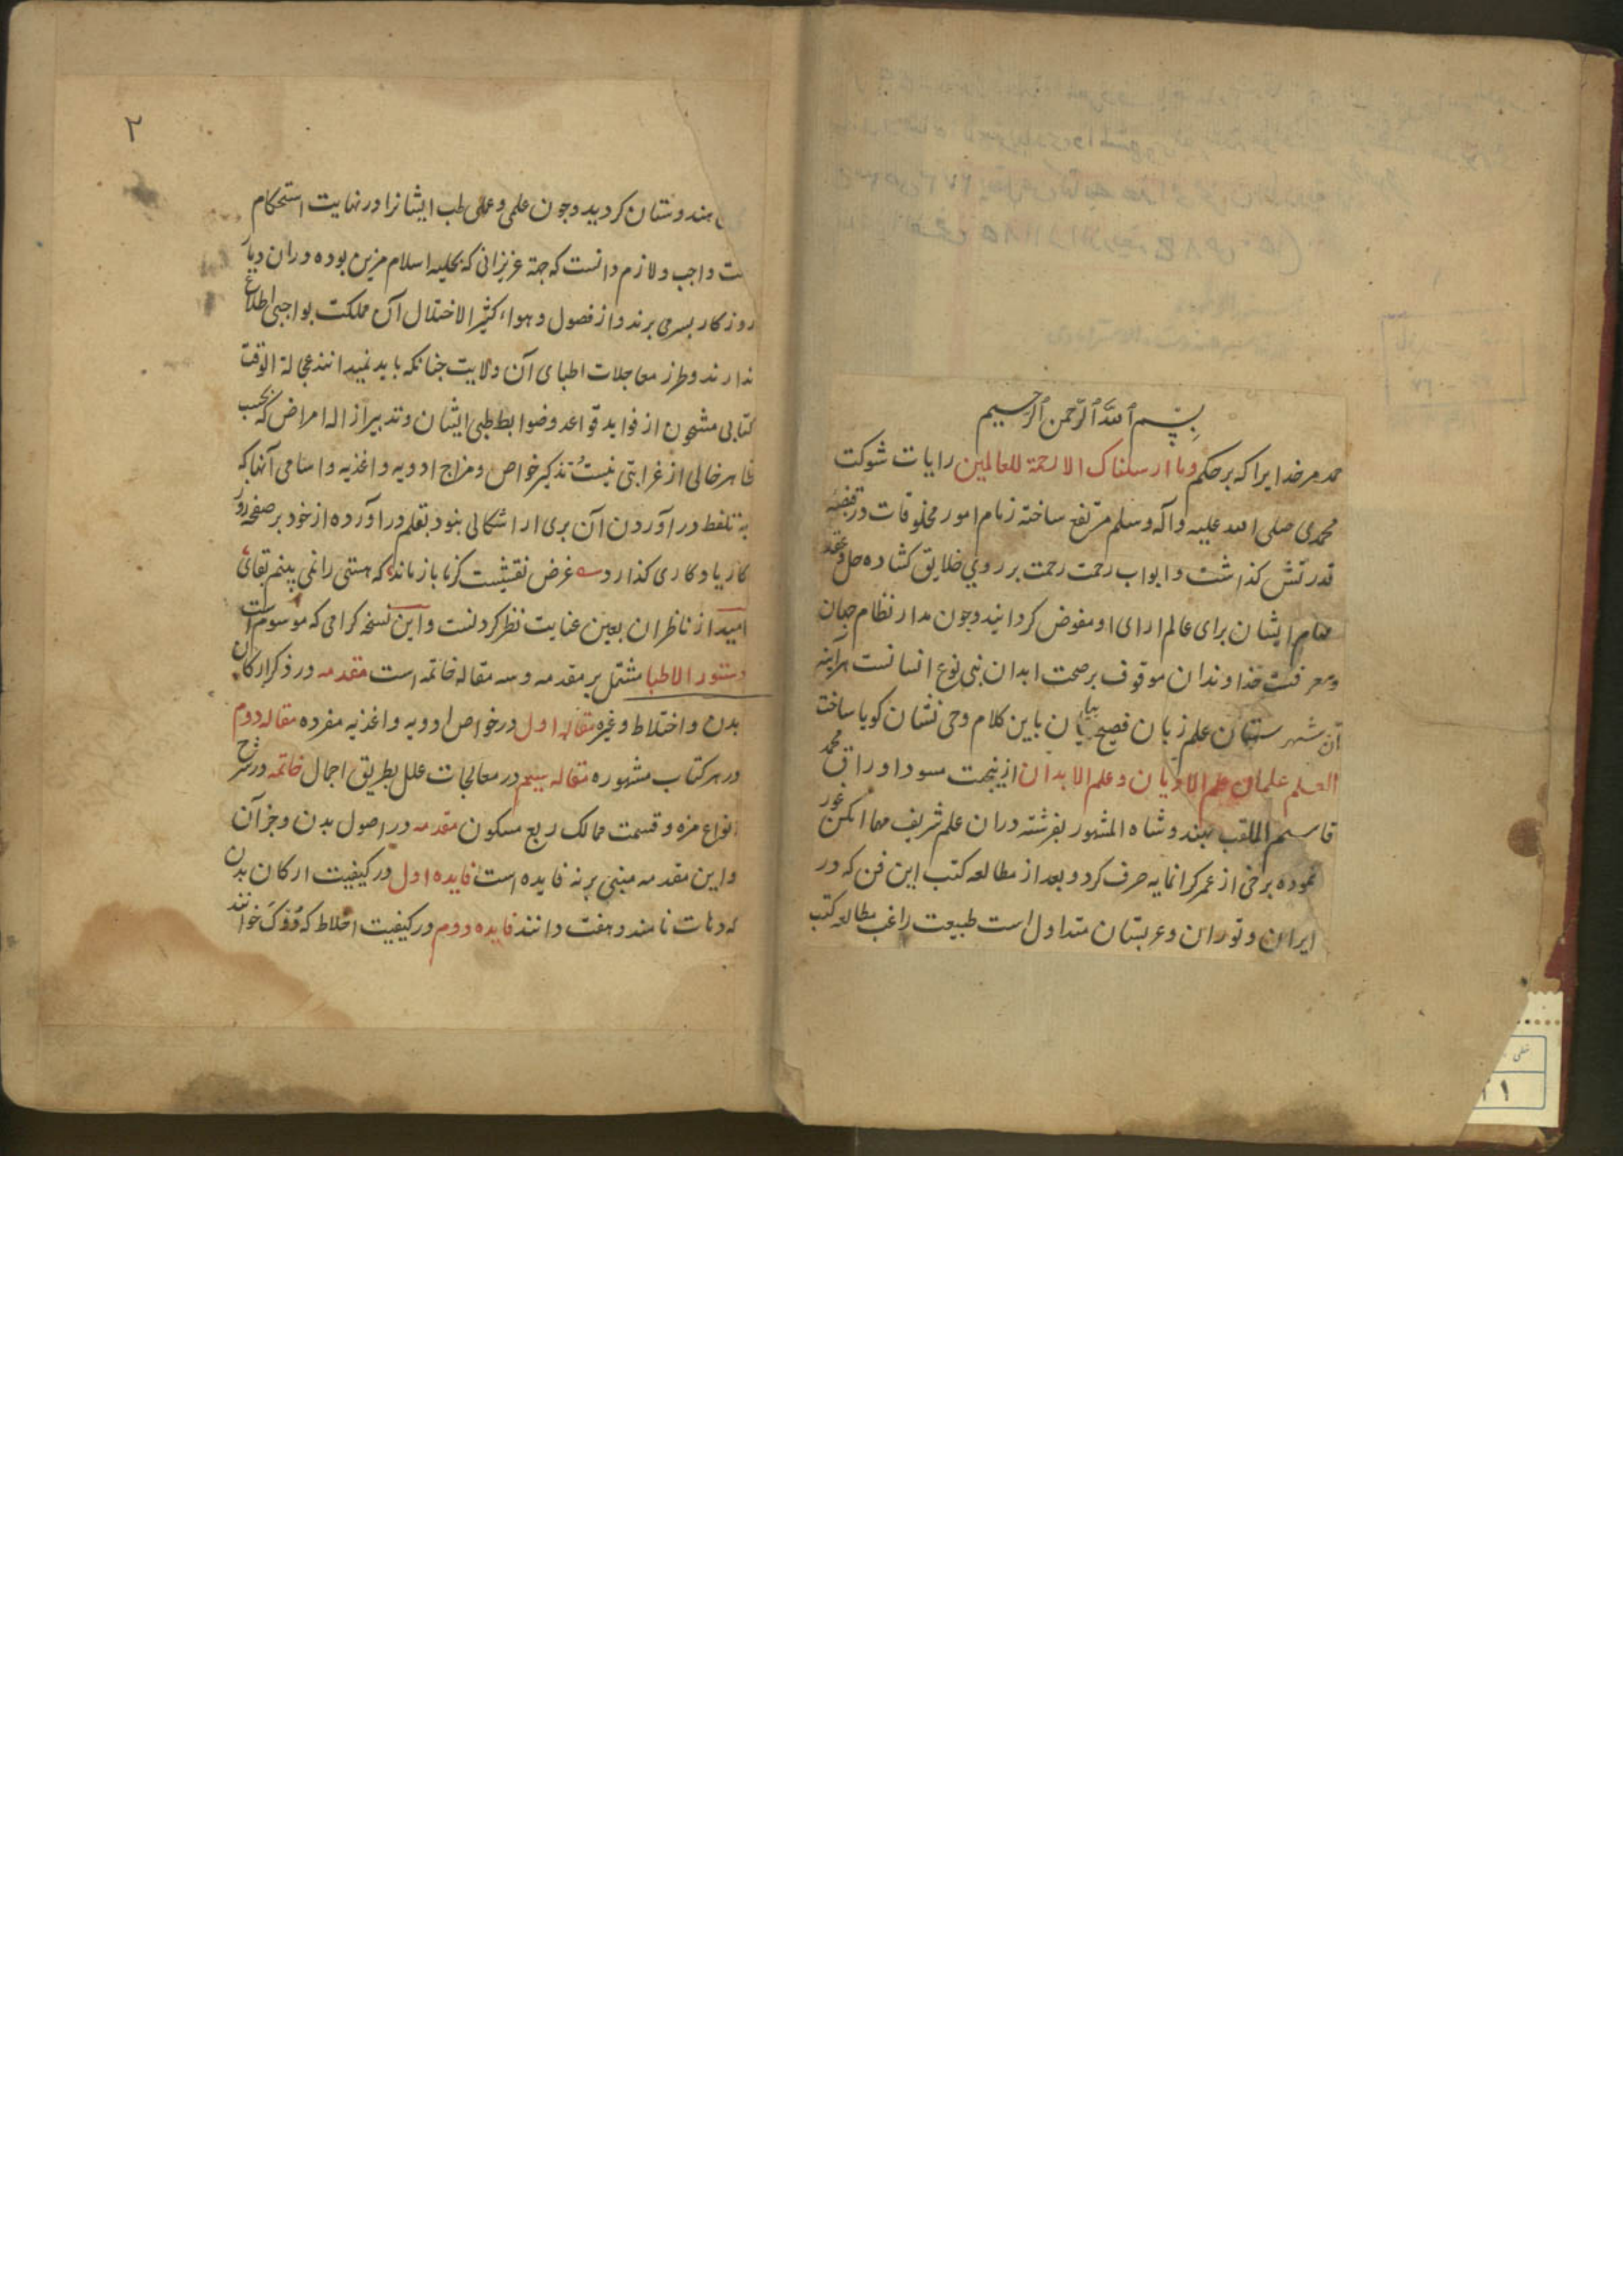 بسم الله الرحمن الرحیم
حمد مر خدایرا که بر حکم وما ارسلناک الا رحمة للعالمین رایات شوکت
محمدی صلی الله علیه وآله وسلم مرتفع ساخته زمام امور مخلوقات در قبضه
قدرتش کذاشت وابواب رحمت رحمت بر روی خلایق کشاده حل وعقد
مهام ایشان برای عالم ارای او مفوض کردانید وجون مدار نظام جهان
ومعرفت خداوندان موقوف بر صحت ابدان بنی نوع انسانست هرآینه
آن شهرستان علم زبان فصیح بیان باین کلام وحی نشان کویا ساخت
العلم علمان علم الادیان وعلم الابدان ازینجهت مسود اوراق محمد
قاسم الملقب بهندوشاه المشهور بفرشته دران علم شریف مهما امکن غور
نموده برخی از عمر کرانمایه صرف کرد وبعد از مطالعه کتب این فن که در
ایران وتوران وعربستان متداول است طبیعت راغب مطالعه کتب
۲
هندوستان کردید وجون علمی وعملی طب ایشانرا در نهایت استحکام
واجب ولازم دانست که جهة عزیزانی که بحلیه اسلام مزین بوده دران دیار
روزکار بسر می برند واز فصول وهواء کثیر الاختلال آن مملکت بواجبی اطلاع
ندارند وطرز معاجلات اطبای آن ولایت جنانکه باید نمیدانند عجالة الوقت
کتابی مشحون از فواید قواعد وضوابط طبی ایشان وتدبیر ازاله امراض که بحسب
ظاهر خالی از غرابتی نیست وتذکیر خواص ومزاج ادویه واغذیه واسامی آنها که
به تلفظ در آوردن آن بری از اشکالی بنود بقلم در آورده از خود بر صفحه روز
کار یادکاری کذارد غرض نقشیست کز ما باز ماند که هستی را نمی بینم بقائی
امید از ناظران بعین عنایت نظر کردنست واین نسخه کرامی که موسوم است
دستور الاطبا مشتمل بر مقدمه وسه مقاله خاتمه است مقدمه در ذکر ارکان
بدن واختلاط وغیره مقاله اول در خواص ادویه واغذیه مفرده مقاله دوم
در هر کتاب مشهوره مقاله سیم در معالجات علل بطریق اجمال خاتمه در شرح
انواع مزه وقسمت ممالک ربع مسکون مقدمه در اصول بدن وجز آن
واین مقدمه مبنی بر نه فایده است فایده اول در کیفیت ارکان بدن
که دهات نامند وهفت دانند فایده دوم در کیفیت اخلاط که دوک خوانند
خطی